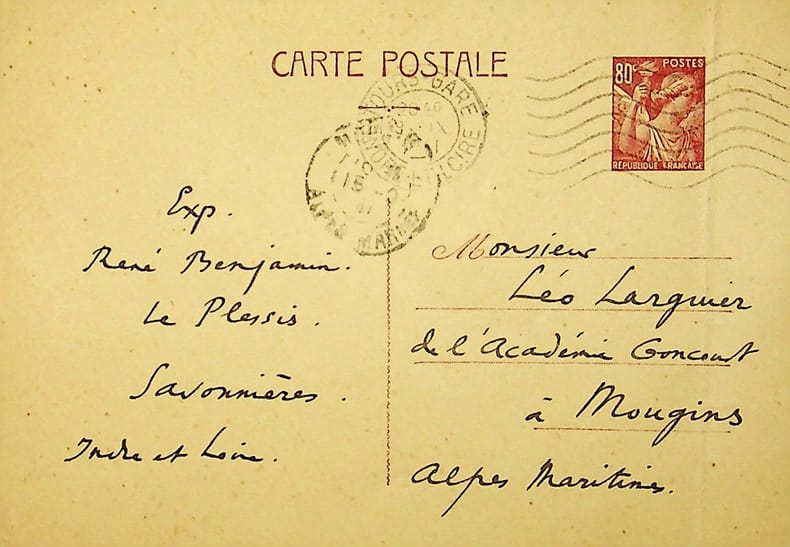 CARTE POSTALE
80c POSTES
RÉPUBLIQUE FRANÇAISE
TOURS GARE
LOIRE
ALPES MARMES
Exp.
René Benjamin.
Le Plessis.
Savonnières.
Indre et Loire.
Monsieur
Léo Larguier
de l'Académie Goncourt
à Mougins
Alpes Maritimes.